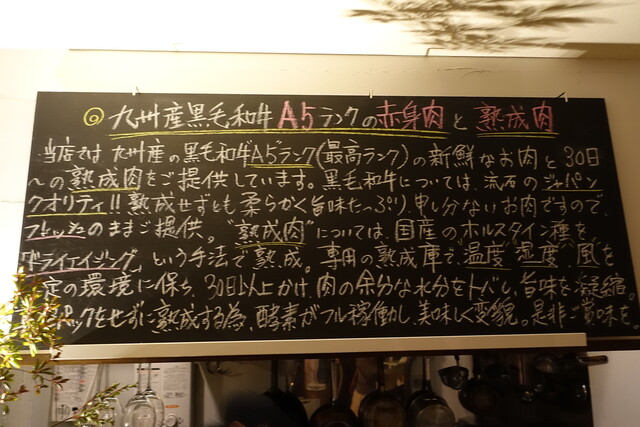 ◎九州産黒毛和牛A5ランクの赤身肉と熟成肉
当店では、九州産の黒毛和牛A5ランク(最高ランク)の新鮮なお肉と30日
〜の熟成肉をご提供しています。黒毛和牛については、流石のジャパン
クオリティ!!熟成せずとも柔らかく旨味たっぷり、申し分ないお肉ですので、
フレッシュのままご提供。"熟成肉"については、国産のホルスタイン種を
ドライエイジングという手法で熟成。専用の熟成庫で、"温度""湿度""風"を
定の環境に保ち、30日以上かけ、肉の余分な水分をトバし、旨味を凝縮。
パックをせずに熟成する為、酵素がフル稼働し、美味しく変貌。是非ご賞味を。